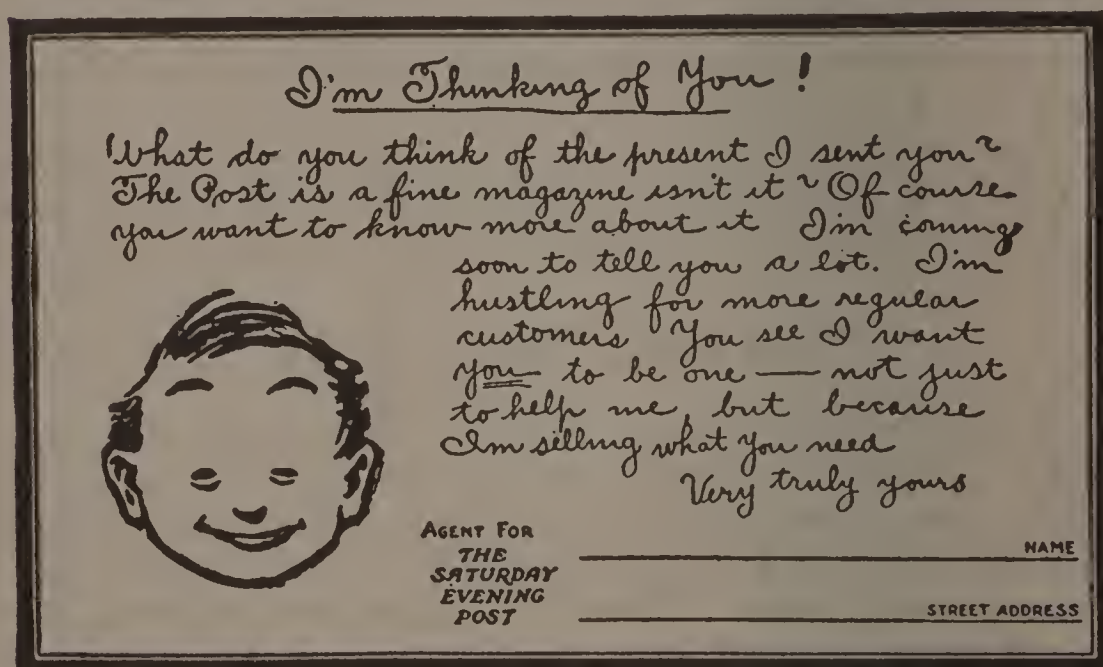 I'm Thinking of You!
What do you think of the present I sent you?
The Post is a fine magazine isn't it? Of course
you want to know more about it I'm coming
soon to tell you a lot. I'm
hustling for more regular
customers You see I want
you to be one — not just
to help me, but because
I'm selling what you need
Very truly yours
AGENT FOR
THE
SATURDAY
EVENING
POST
NAME
STREET ADDRESS